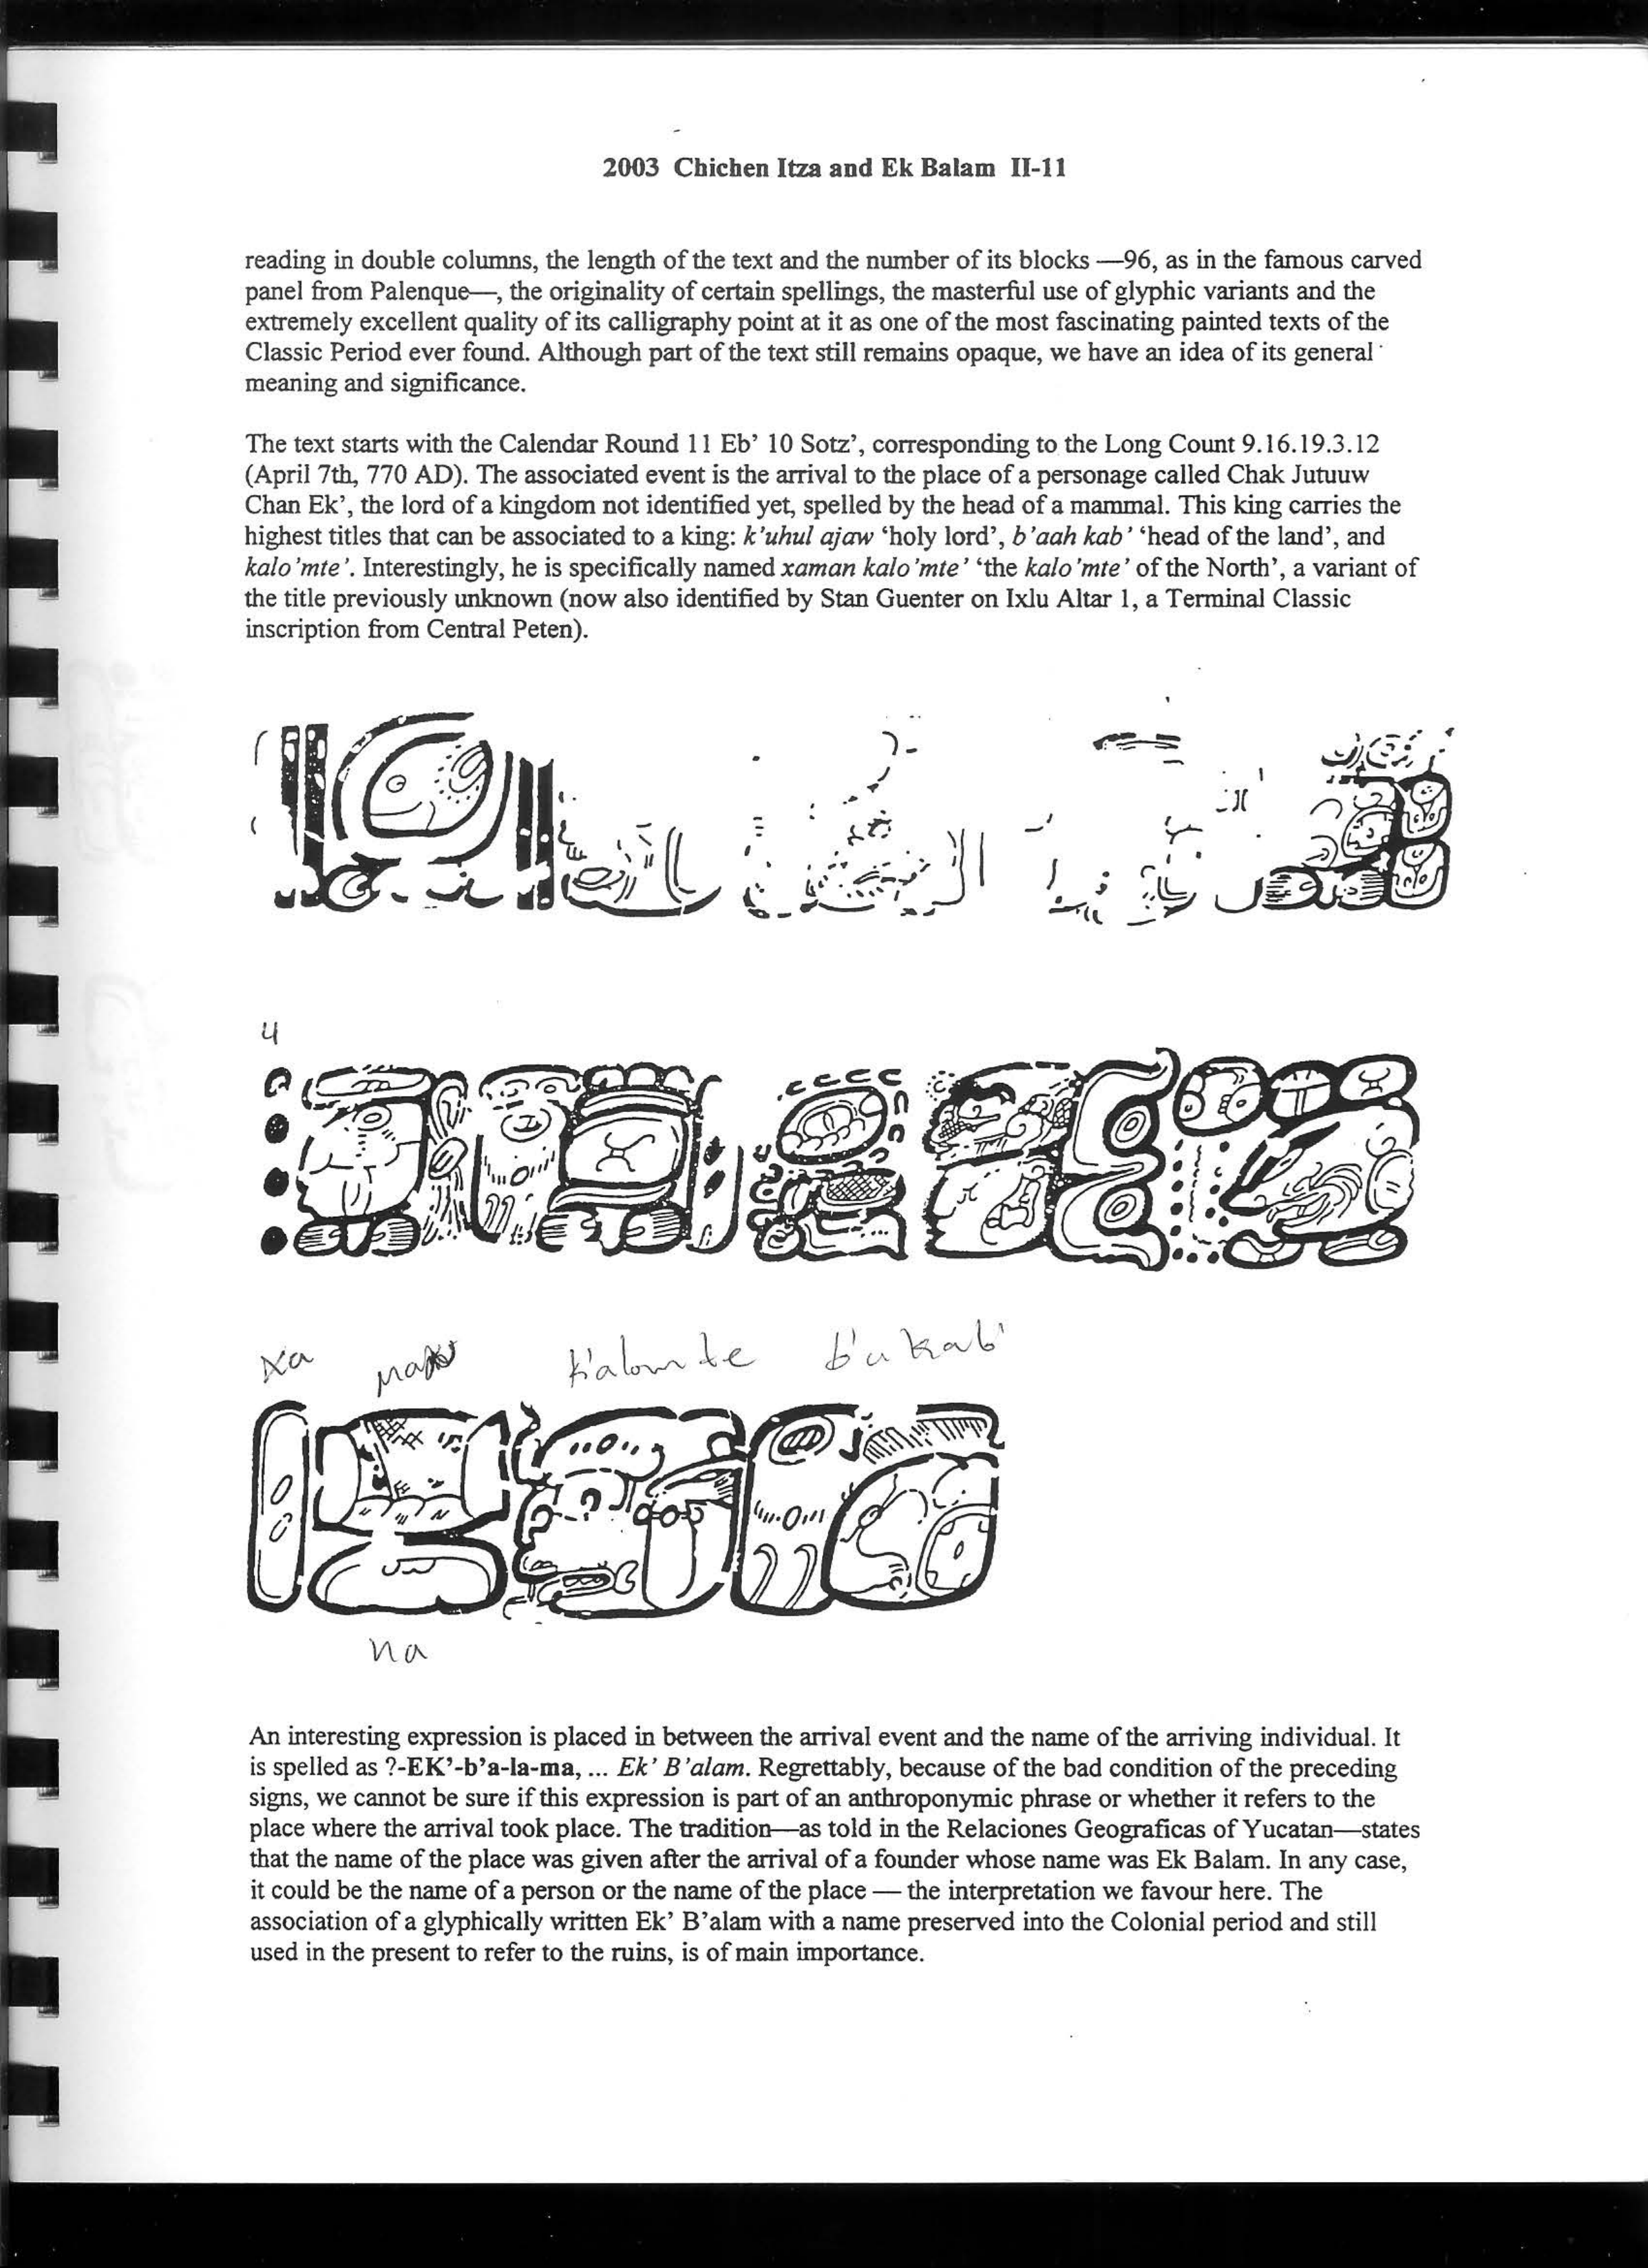 2003 Chichen Itza and Ek Balam II-11
reading in double columns, the length of the text and the number of its blocks —96, as in the famous carved
panel from Palenque—, the originality of certain spellings, the masterful use of glyphic variants and the
extremely excellent quality of its calligraphy point at it as one of the most fascinating painted texts of the
Classic Period ever found. Although part of the text still remains opaque, we have an idea of its general
meaning and significance.
The text starts with the Calendar Round 11 Eb’ 10 Sotz’, corresponding to the Long Count 9.16.19.3.12
(April 7th, 770 AD). The associated event is the arrival to the place of a personage called Chak Jutuuw
Chan Ek’, the lord of a kingdom not identified yet, spelled by the head of a mammal. This king carries the
highest titles that can be associated to a king: k’uhul ajaw ‘holy lord’, b’aah kab’ ‘head of the land’, and
kalo’mte’. Interestingly, he is specifically named xaman kalo’mte’ ‘the kalo’mte’ of the North’, a variant of
the title previously unknown (now also identified by Stan Guenter on Ixlu Altar 1, a Terminal Classic
inscription from Central Peten).
4
xa k'alomte b'akab'
na
An interesting expression is placed in between the arrival event and the name of the arriving individual. It
is spelled as ?-EK’-b’a-la-ma, ... Ek’ B’alam. Regrettably, because of the bad condition of the preceding
signs, we cannot be sure if this expression is part of an anthroponymic phrase or whether it refers to the
place where the arrival took place. The tradition—as told in the Relaciones Geograficas of Yucatan—states
that the name of the place was given after the arrival of a founder whose name was Ek Balam. In any case,
it could be the name of a person or the name of the place — the interpretation we favour here. The
association of a glyphically written Ek’ B’alam with a name preserved into the Colonial period and still
used in the present to refer to the ruins, is of main importance.